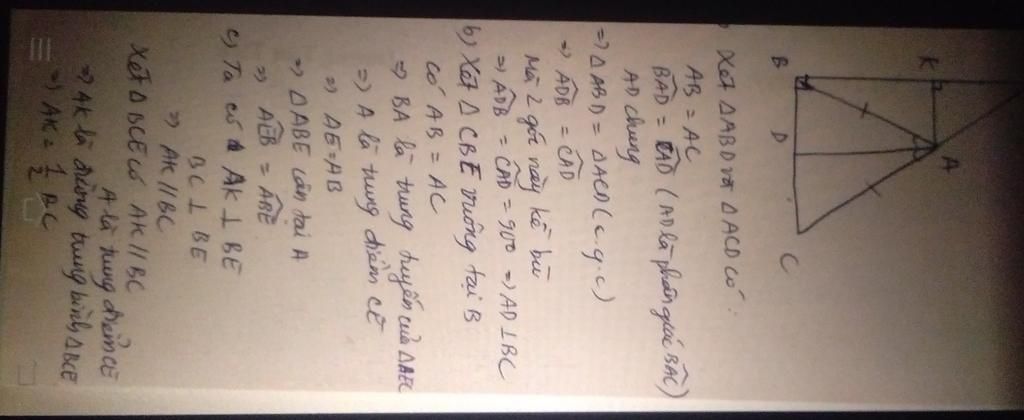 K
B
D
A
C
Xét ΔABD và ΔACD có:
AB = AC
BAD = CAD (AD là phân giác BAC)
AD chung
⇒ ΔABD = ΔACD (c.g.c)
⇒ ADB = CAD
Mà 2 góc này kề bù
⇒ ADB = CAD = 90° ⇒ AD ⊥ BC
b) Xét ΔCBE vuông tại B
có AB = AC
⇒ BA là trung tuyến của ΔBEC
⇒ A là trung điểm CE
⇒ AE = AB
⇒ ΔABE cân tại A
⇒ AEB = ABE
c) Ta có AK ⊥ BE
BC ⊥ BE
⇒ AK // BC
Xét ΔBCE có AK // BC
A là trung điểm CE
⇒ AK là đường trung bình ΔBCE
⇒ AK = 1/2 BC